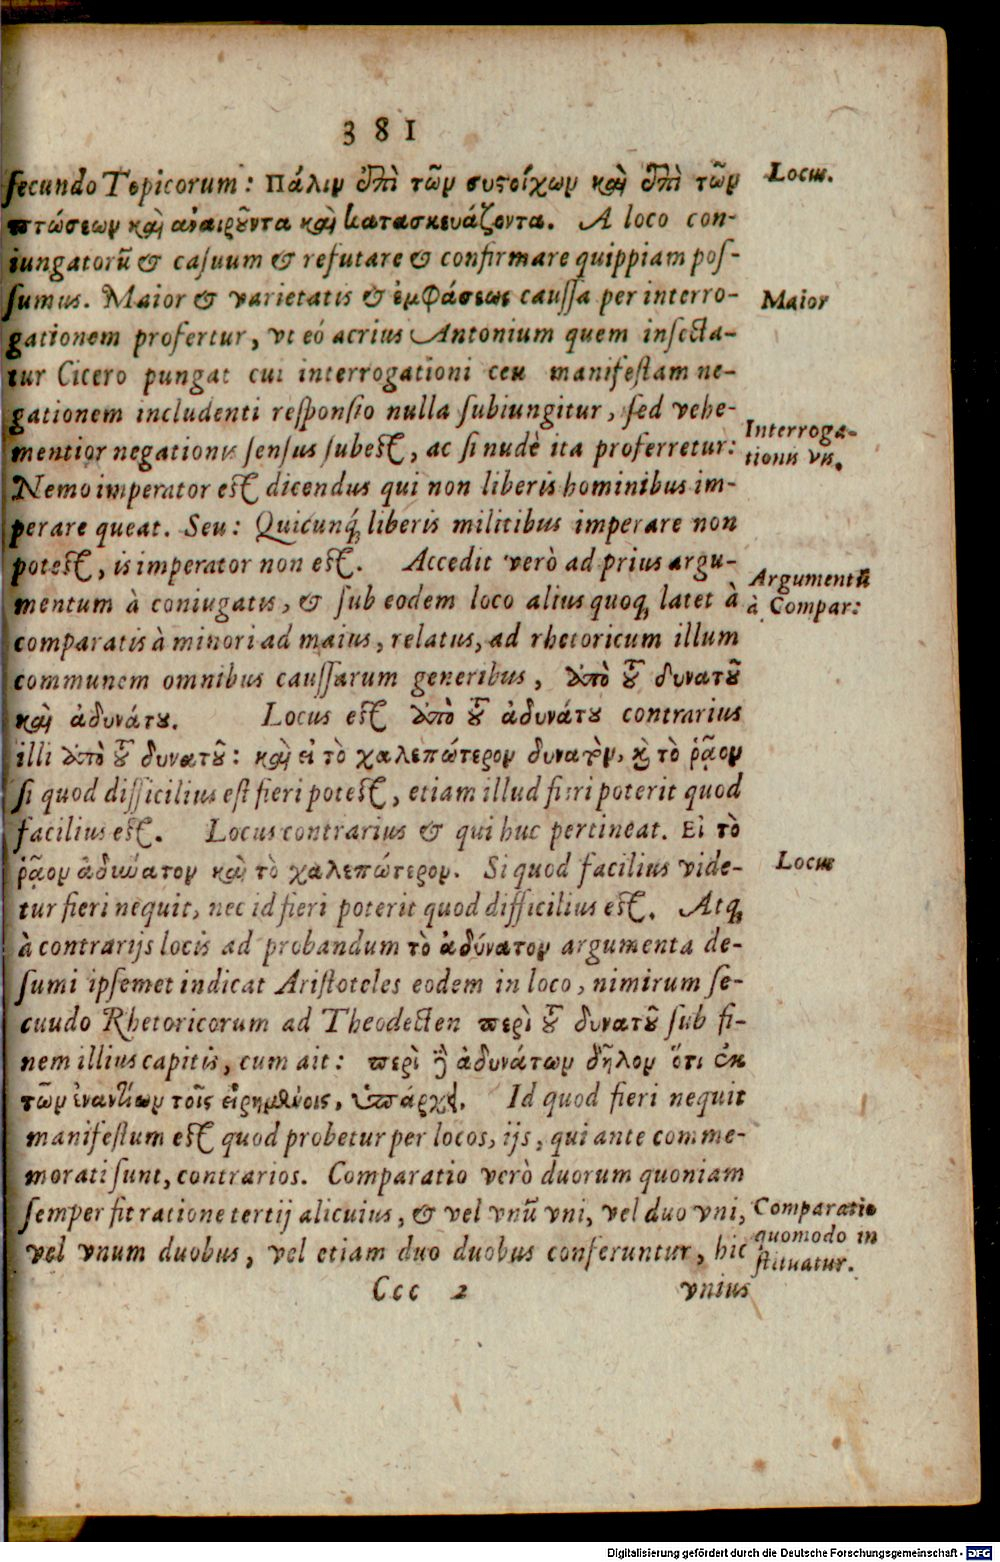 381
secundo Topicorum: Πάλιν ἐπὶ τῶν συστοίχων καὶ ἐπὶ τῶν
Locus.
πτώσεων καὶ ἀναιροῦντα καὶ κατασκευάζοντα. A loco con-
iungatorũ & casuum & refutare & confirmare quippiam pos-
sumus. Maior & varietatis & ἐμφάσεως caussa per interro-
Maior
gationem profertur, vt eó acrius Antonium quem insecta-
tur Cicero pungat cui interrogationi ceu manifestam ne-
gationem includenti responsio nulla subiungitur, sed vehe-
mentior negationis sensus subest, ac si nudè ita proferretur:
Interroga-
tionis vis.
Nemo imperator est dicendus qui non liberis hominibus im-
perare queat. Seu: Quicunq́; liberis militibus imperare non
potest, is imperator non est. Accedit verò ad prius argu-
mentum à coniugatis, & sub eodem loco alius quoq; latet à
Argumentũ
à Compar:
comparatis à minori ad maius, relatus, ad rhetoricum illum
communem omnibus caussarum generibus, ἀπὸ τοῦ δυνατοῦ
καὶ ἀδυνάτου. Locus est ἀπὸ τοῦ ἀδυνάτου contrarius
illi ἀπὸ τοῦ δυνατοῦ: καὶ εἰ τὸ χαλεπώτερον δυνατὸν, καὶ τὸ ῥᾷον
si quod difficilius est fieri potest, etiam illud fieri poterit quod
facilius est. Locus contrarius & qui huc pertineat. Εἰ τὸ
ῥᾷον ἀδύνατον καὶ τὸ χαλεπώτερον. Si quod facilius vide-
Locus
tur fieri nequit, nec id fieri poterit quod difficilius est. Atq;
à contrarijs locis ad probandum τὸ ἀδύνατον argumenta de-
sumi ipsemet indicat Aristoteles eodem in loco, nimirum se-
cuudo Rhetoricorum ad Theodecten περὶ τοῦ δυνατοῦ sub fi-
nem illius capitis, cum ait: περὶ δὲ ἀδυνάτων δῆλον ὅτι ἐκ
τῶν ἐναντίων τοῖς εἰρημένοις, ὑπάρχει. Id quod fieri nequit
manifestum est quod probetur per locos, ijs, qui ante comme-
morati sunt, contrarios. Comparatio verò duorum quoniam
semper fit ratione tertij alicuius, & vel vnũ vni, vel duo vni,
Comparatio
quomodo in
stituatur.
vel vnum duobus, vel etiam duo duobus conferuntur, hic
Ccc 2
vnius
Digitalisierung gefördert durch die Deutsche Forschungsgemeinschaft - DFG